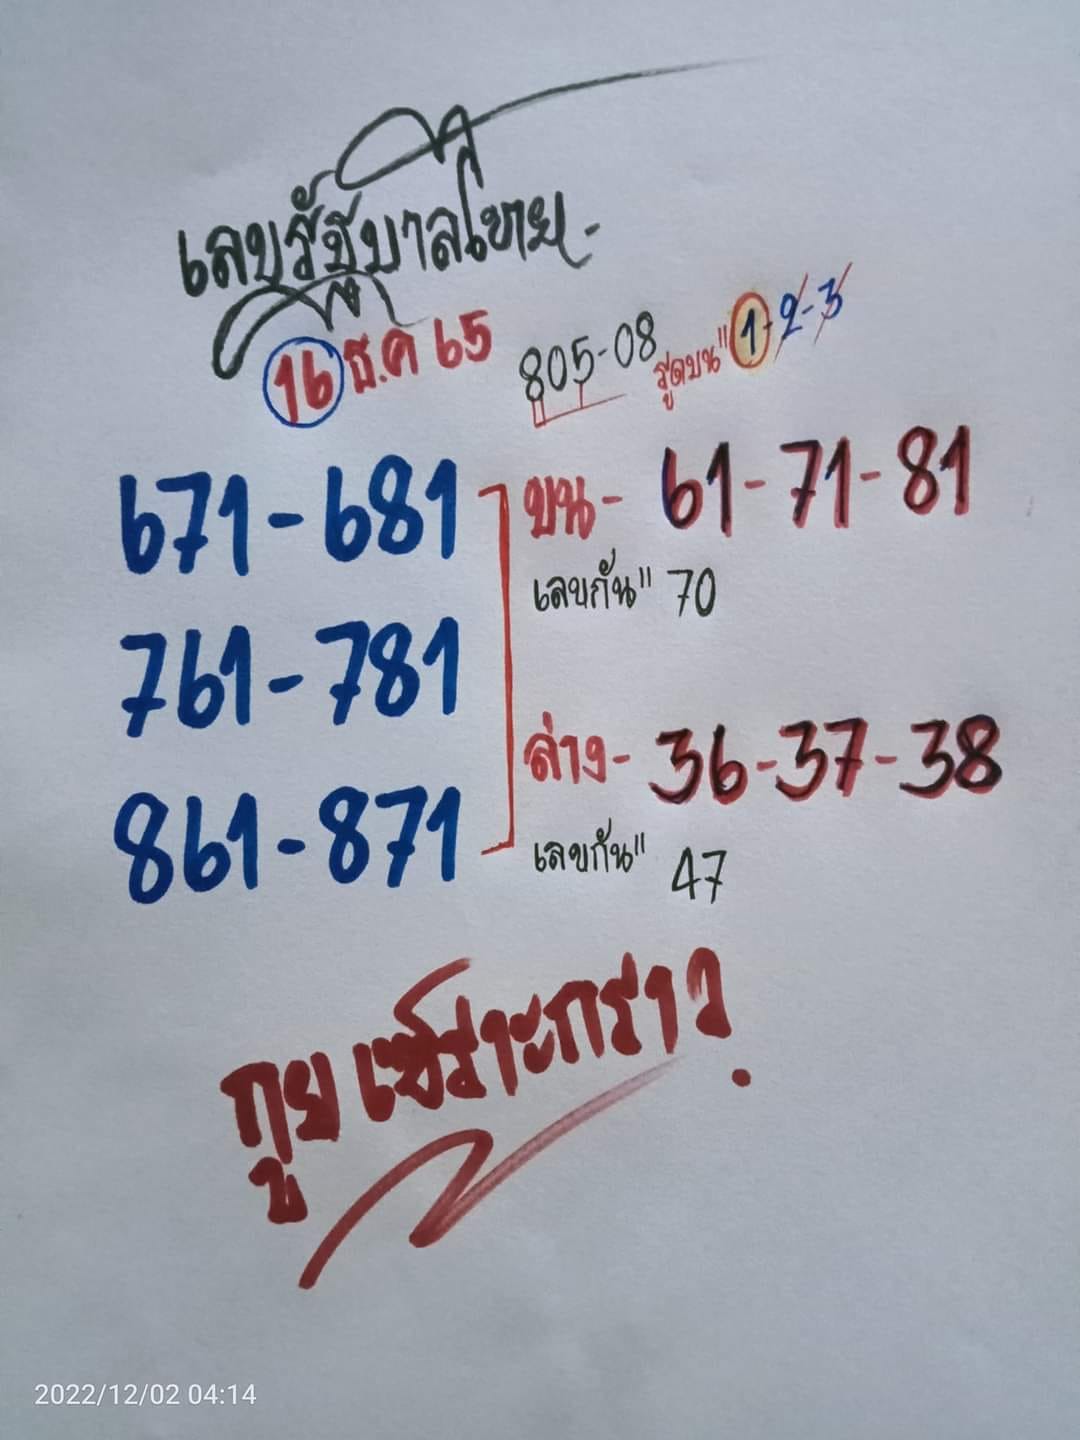 เลขรัฐบาลไทย-
16 ธ.ค 65
805-08 รูดบน" 1-2-3
671-681
761-781
861-871
บน- 61-71-81
เลขกัน" 70
ล่าง- 36-37-38
เลขกัน" 47
2022/12/02 04:14